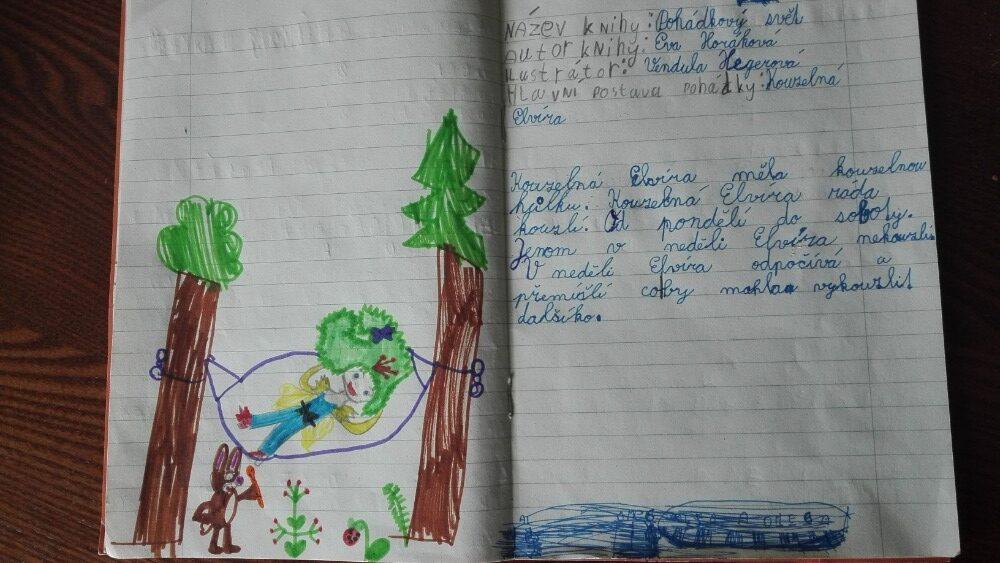 Název knihy: Pohádkový svět
Autor knihy: Eva Horáková
Ilustrátor: Vendula Hegerová
Hlavní postava pohádky: Kouzelná
Elvíra
Kouzelná Elvíra měla kouzelnou
hůlku. Kouzelná Elvíra ráda
kouzlí. Od pondělí do soboty.
Jenom v neděli Elvíra nekouzlí.
V neděli Elvíra odpočívá a
přemíšlí coby mohla vykouzlit
dalšího.